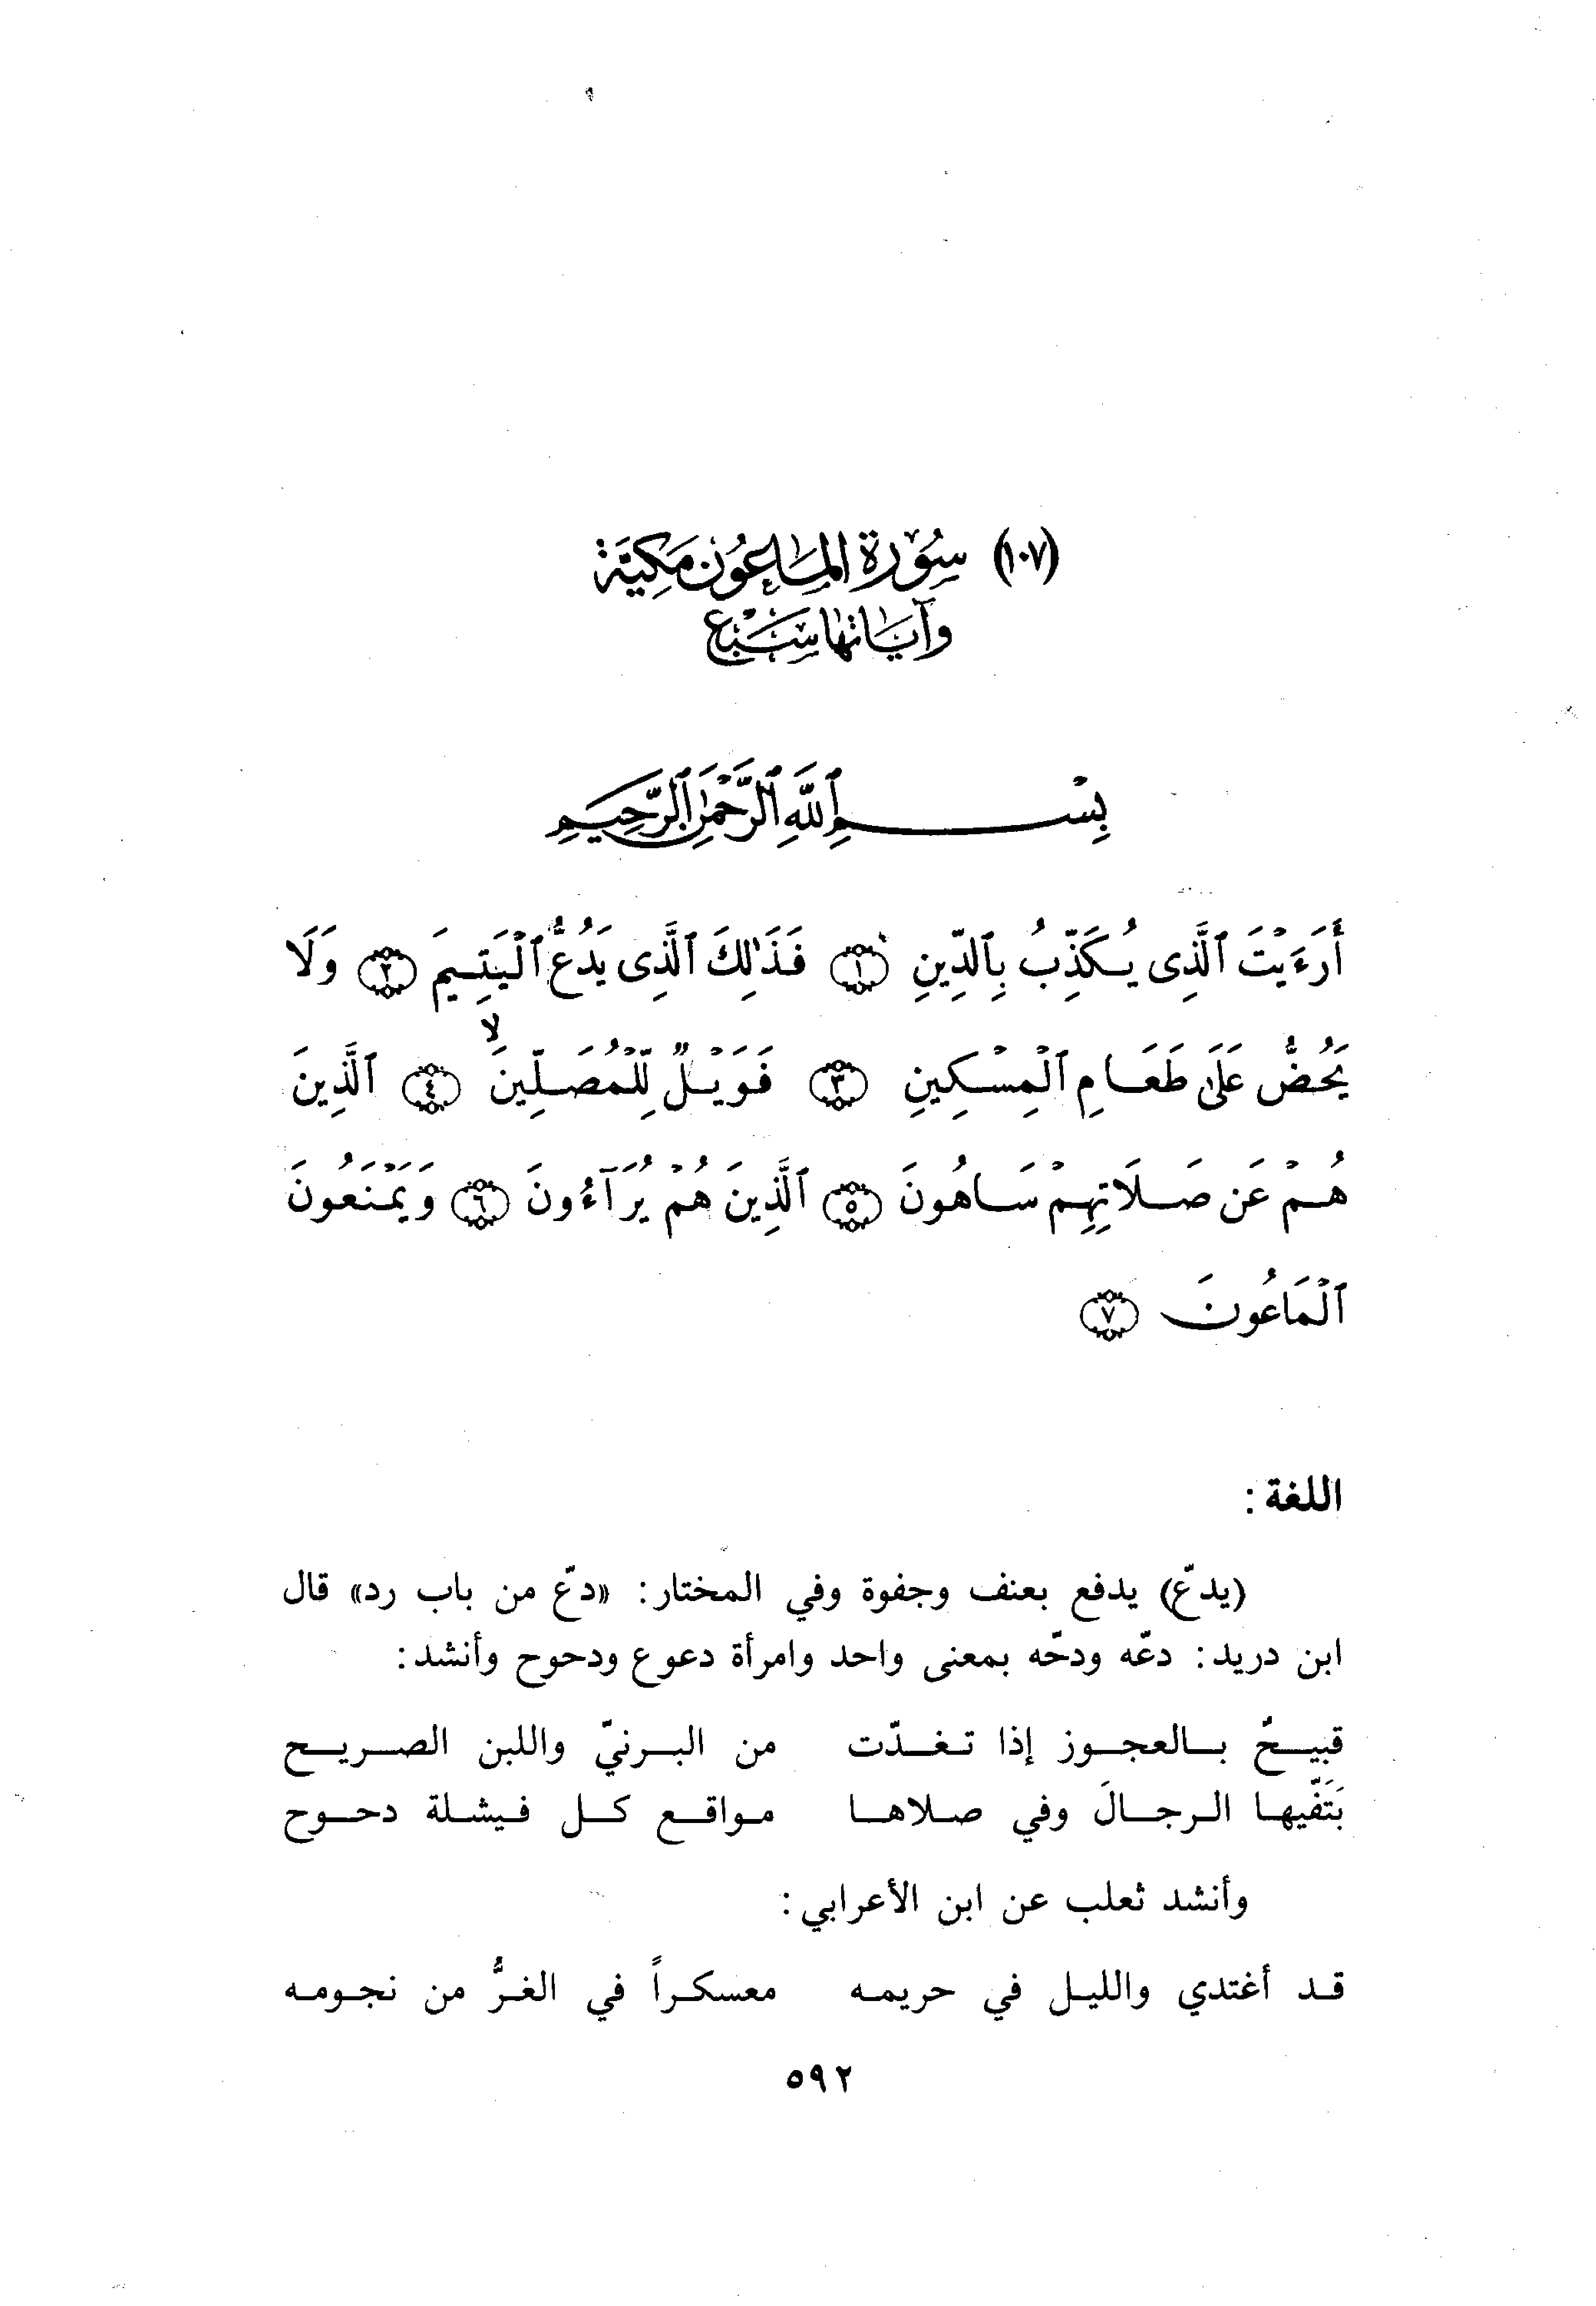 (١٠٧) سُوْرَةِ المَاعُون مَكِيَّة
وَآيَاتُهَا سَبْع
بِسْمِ ٱللَّهِ ٱلرَّحْمَٰنِ ٱلرَّحِيمِ
أَرَءَيْتَ ٱلَّذِى يُكَذِّبُ بِٱلدِّينِ ١ فَذَٰلِكَ ٱلَّذِى يَدُعُّ ٱلْيَتِيمَ ٢ وَلَا
يَحُضُّ عَلَىٰ طَعَامِ ٱلْمِسْكِينِ ٣ فَوَيْلٌ لِّلْمُصَلِّينَ ۙ ٤ ٱلَّذِينَ
هُمْ عَن صَلَاتِهِمْ سَاهُونَ ٥ ٱلَّذِينَ هُمْ يُرَآءُونَ ٦ وَيَمْنَعُونَ
ٱلْمَاعُونَ ٧
اللغة :
(يدعّ) يدفع بعنف وجفوة وفي المختار: «دعّ من باب رد» قال
ابن دريد: دعّه ودحّه بمعنى واحد وامرأة دعوع ودحوح وأنشد:
قبيحٌ بالعجوز إذا تغدّت من البرنيّ واللبن الصريح
بَتَفّيها الرجالَ وفي صلاها مواقع كل فيشلة دحوح
وأنشد ثعلب عن ابن الأعرابي:
قد أغتدي والليل في حريمه معسكراً في الغرُّ من نجومه
٥٩٢